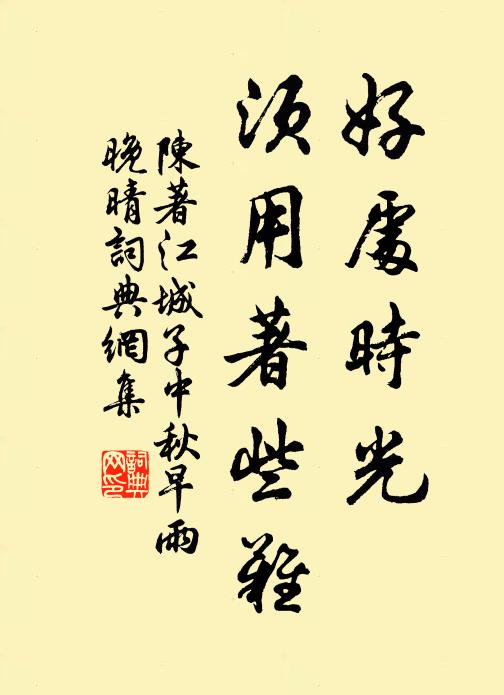 好處時光
須用著些難
陳著江城子中秋早雨
晚晴詞典網集
詞典网印